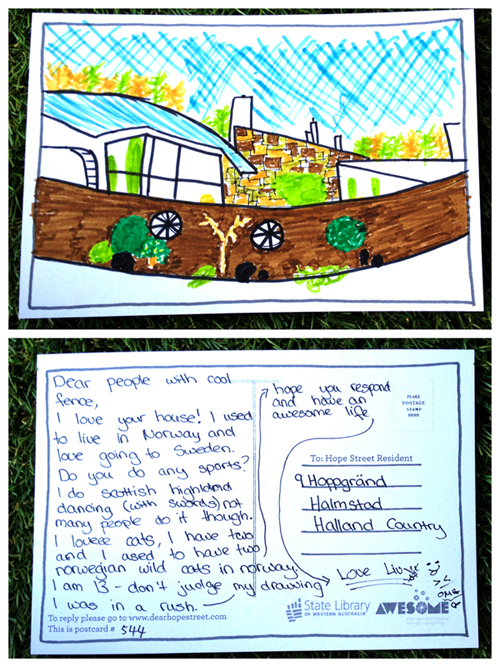 Dear people with cool
fence,
I love your house! I used
to live in Norway and
love going to Sweden.
Do you do any sports?
I do scottish highland
dancing (with swords) not
many people do it though.
I loveee cats, I have two
and I used to have two
norwegian wild cats in norway.
I am 13 - don't judge my drawing
I was in a rush.
hope you respond
and have an
awesome life
Love
PLACE
POSTAGE
STAMP
HERE
To: Hope Street Resident
9 Hoppgränd
Halmstad
Halland Country
To reply please go to www.dearhopestreet.com
This is postcard # 544
State Library
OF WESTERN AUSTRALIA
AWESOME